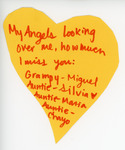 My Angels looking
over me, how much
I miss you:
Grampy - Miguel
Auntie - Silvia ♥
Auntie Maria
Auntie -
Chayo